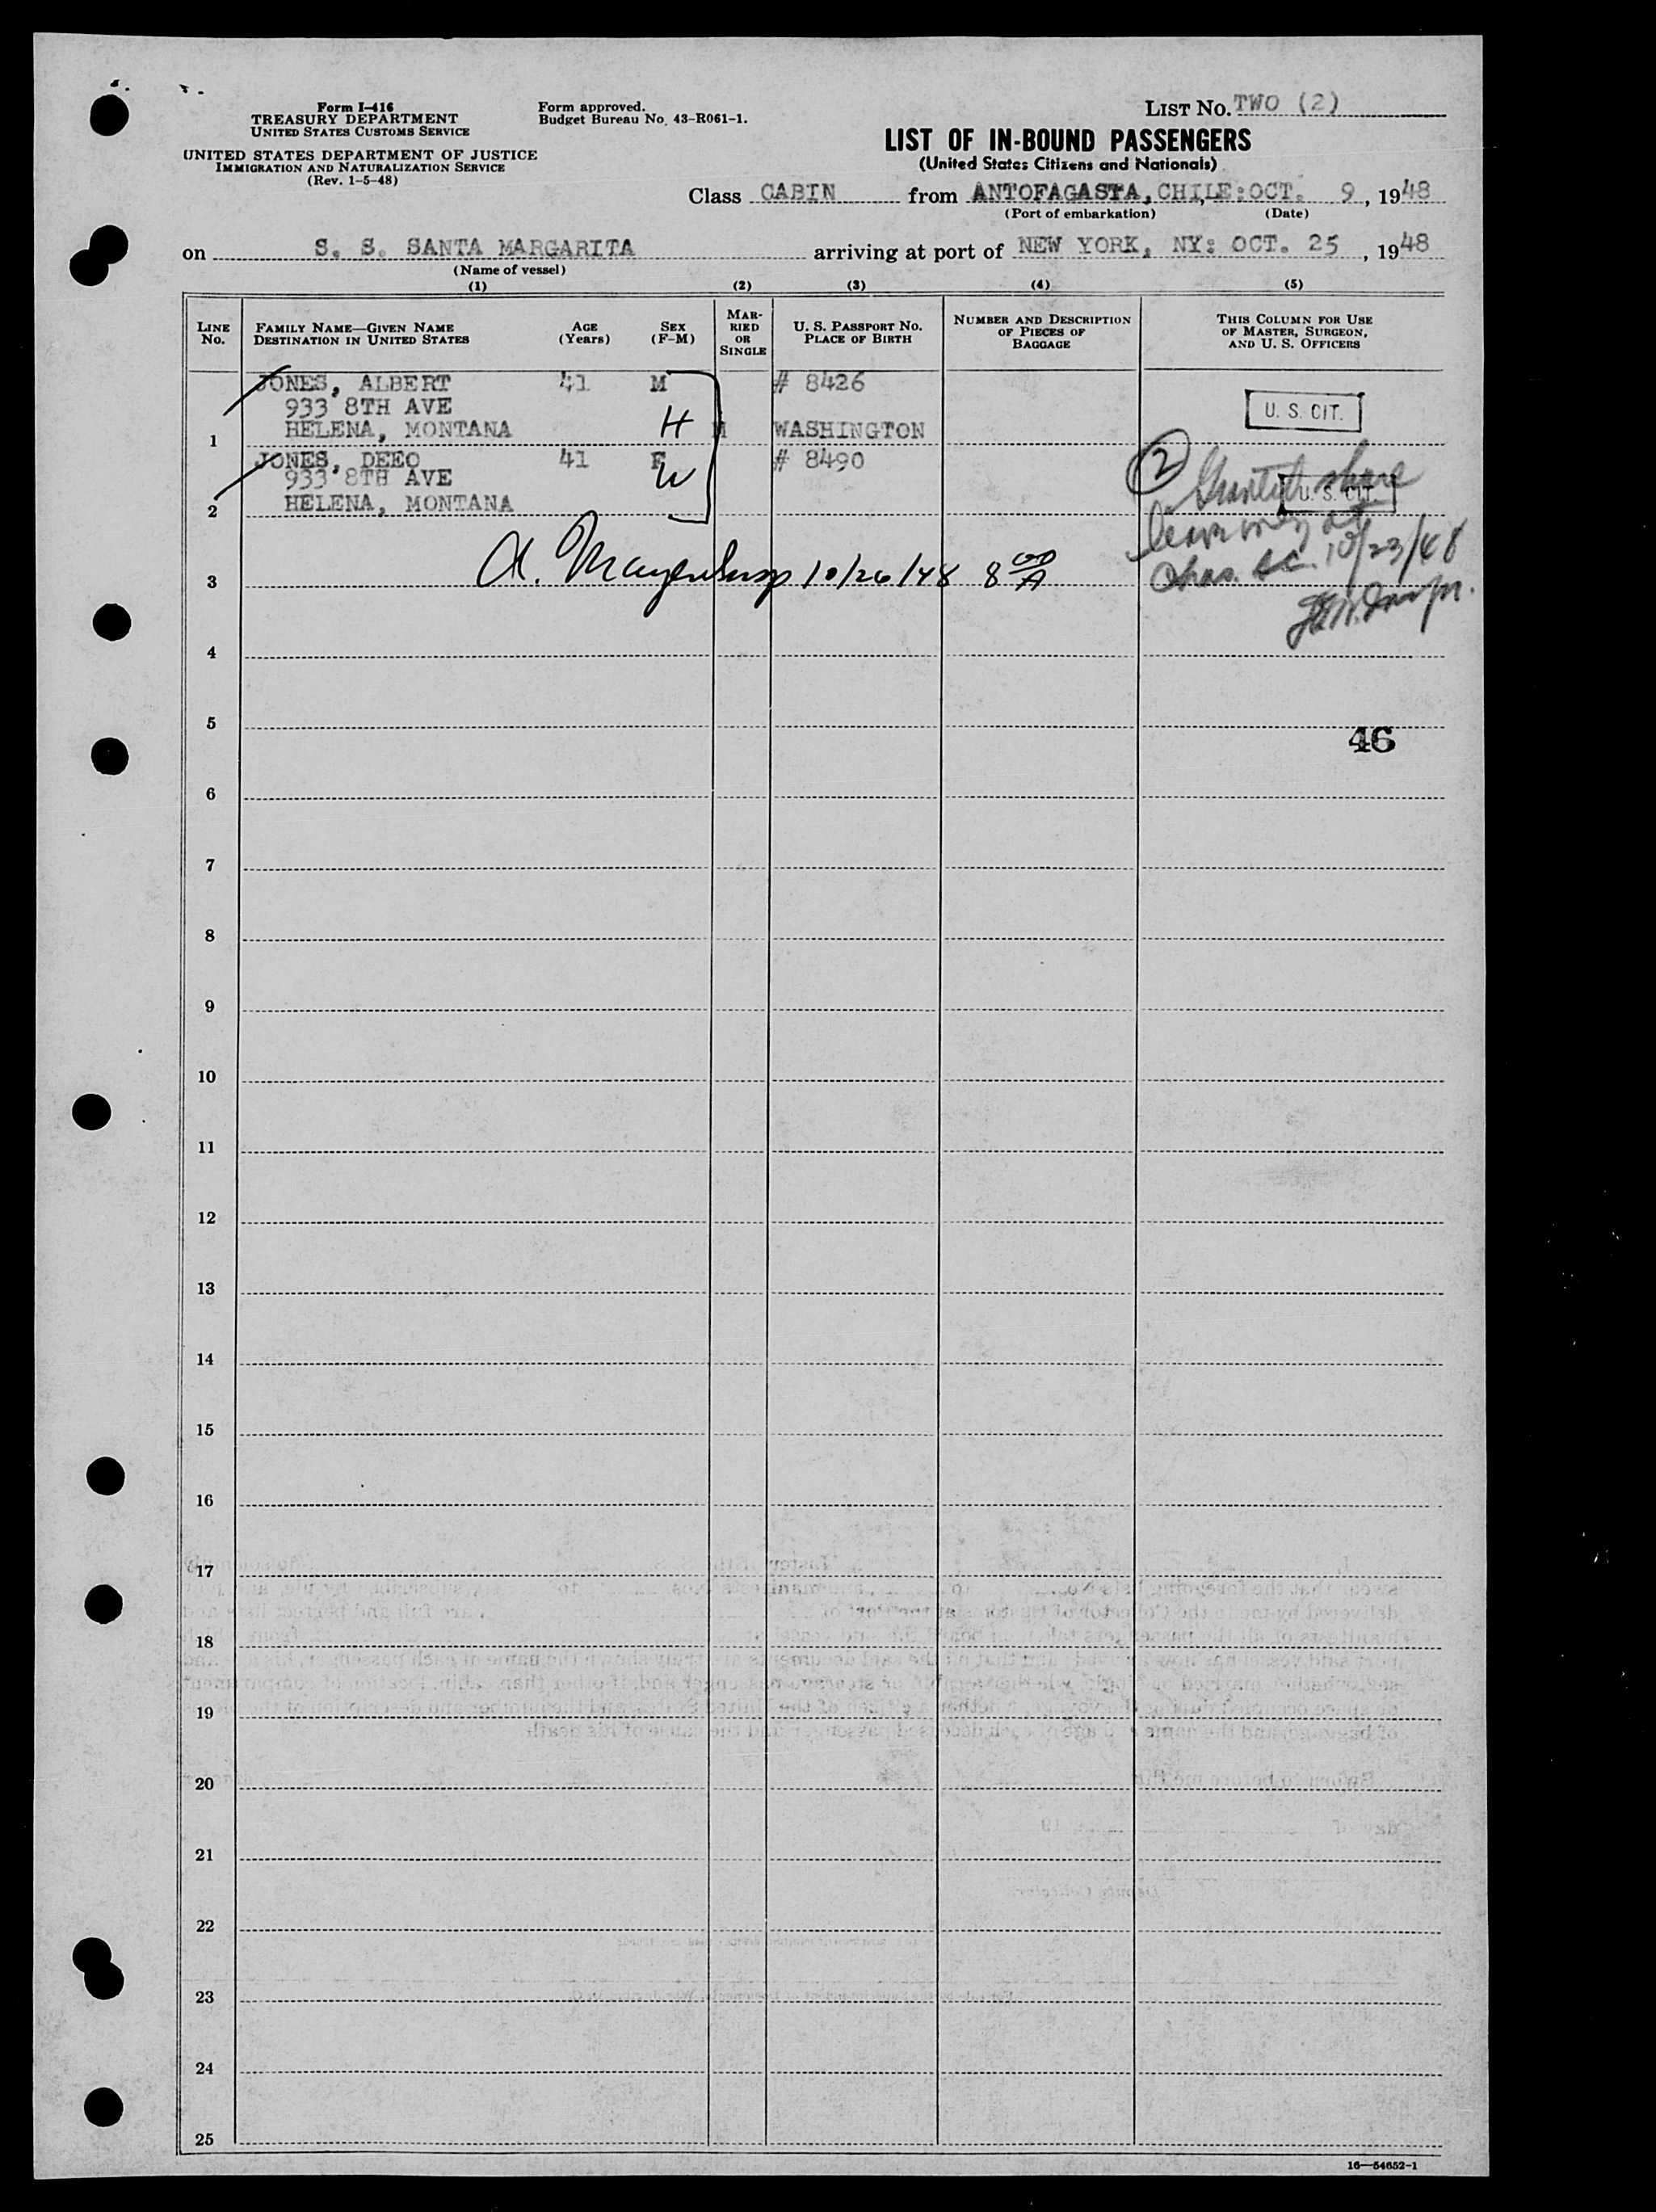 Form I-416
TREASURY DEPARTMENT
UNITED STATES CUSTOMS SERVICE
UNITED STATES DEPARTMENT OF JUSTICE
IMMIGRATION AND NATURALIZATION SERVICE
(Rev. 1-5-48)
Form approved.
Budget Bureau No. 43-R061-1.
LIST No. TWO (2)
LIST OF IN-BOUND PASSENGERS
(United States Citizens and Nationals)
Class CABIN from ANTOFAGASTA, CHILE:OCT. 9, 1948
(Port of embarkation) (Date)
on S. S. SANTA MARGARITA arriving at port of NEW YORK, NY: OCT. 25, 1948
(Name of vessel)
(1) (2) (3) (4) (5)
LINE No.
FAMILY NAME—GIVEN NAME
DESTINATION IN UNITED STATES
AGE (Years)
SEX (F-M)
MARRIED OR SINGLE
U. S. PASSPORT No.
PLACE OF BIRTH
NUMBER AND DESCRIPTION OF PIECES OF BAGGAGE
THIS COLUMN FOR USE OF MASTER, SURGEON, AND U. S. OFFICERS
JONES, ALBERT 41 M # 8426
933 8TH AVE U. S. CIT.
1 HELENA, MONTANA H M WASHINGTON
JONES, DEEO 41 F # 8490
933 8TH AVE W (2) Granted shore
2 HELENA, MONTANA U. S. CIT.
leave only at
3 A. Mayer Insp 10/26/48 8 00 A Chas. S.C. 10/23/48
4
5
46
6
7
8
9
10
11
12
13
14
15
16
17
18
19
20
21
22
23
24
25
16—54652-1